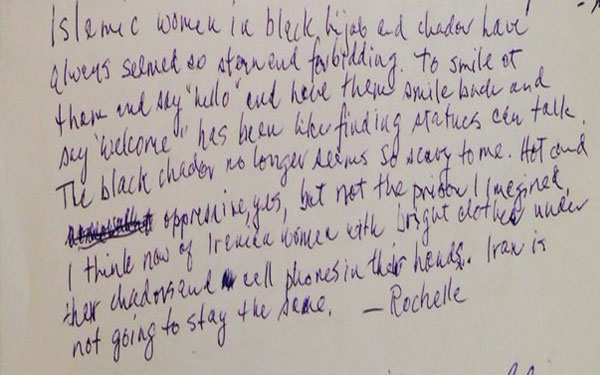 Islamic women in black hijab and chador have
always seemed so stern and forbidding. To smile at
them and say "hello" and have them smile back and
say "welcome" has been like finding statues can talk.
The black chador no longer seems so scary to me. Hot and
oppressive, yes, but not the prison I imagined.
I think now of Iranian women with bright clothes under
their chadors and cell phones in their hands. Iran is
not going to stay the same. — Rochelle